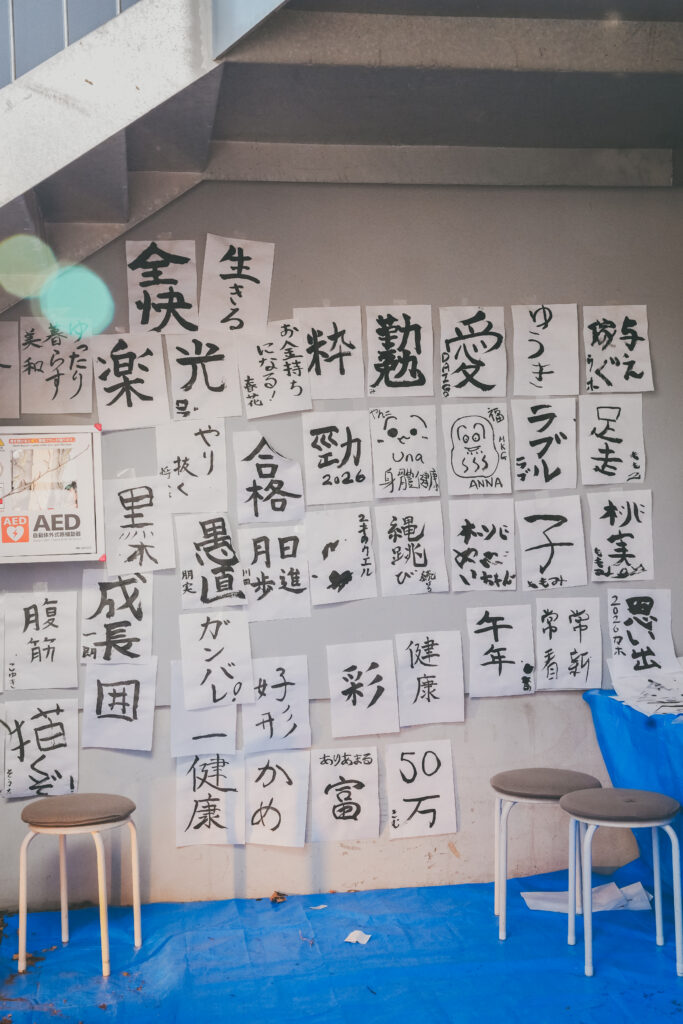 全快
生きる
ゆったり
暮らす
美和
楽
光
お金持ち
になる!
春花
粋
勤勉
愛
DAIGO
ゆうき
与え
稼ぐ
AED
やり
抜く
合格
勁
2026
やんこ
una
身體健康
福
HKG
ANNA
ラブル
足走
もも
黒木
愚直
朋実
日進
月歩
縄
跳び
子
ともみ
桃
実
腹筋
こゆき
成長
一朗
ガンバレ!
好
彩
健康
午年
常新
常春
思い出
2026
囲
描くぞ
一健康
かめ
ありあまる
富
50
万